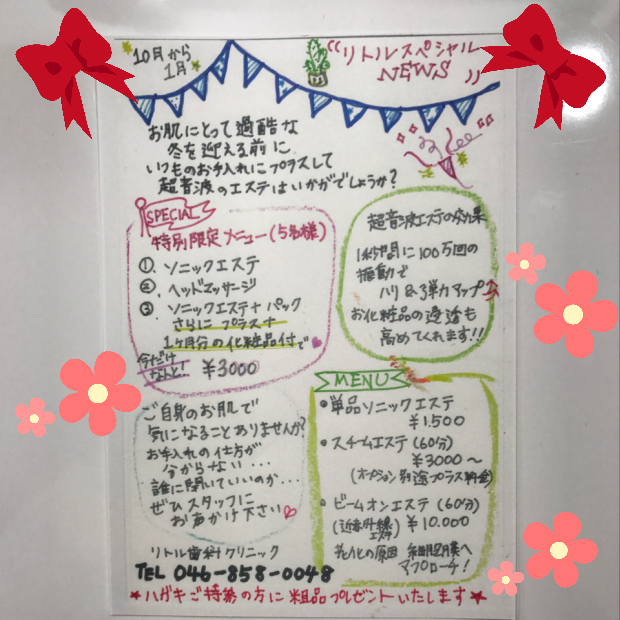 10月から
1月
"リトルスペシャル
NEWS"
お肌にとって過酷な
冬を迎える前に
いつものお手入れにプラスして
超音波のエステはいかがでしょうか?
SPECIAL
特別限定メニュー(5名様)
①、ソニックエステ
②、ヘッドマッサージ
③ ソニックエステ+パック
さらにプラス+
1ヶ月分の化粧品付で
今だけ
なんと!
¥3000
超音波エステの効果
1秒間に100万回の
振動で
ハリ&弾力アップ↑
お化粧品の浸透も
高めてくれます!!
ご自身のお肌で
気になることありませんか?
お手入れの仕方が
分からない...
誰に聞いていいのか...
ぜひスタッフに
お声かけ下さい♡
MENU
●単品ソニックエステ
¥1.500
●スチームエステ(60分)
¥3000~
(オプション別途プラス料金)
●ビームオンエステ(60分)
(近赤外線エステ) ¥10.000
老化の原因 細胞膜へ
アプローチ!
リトル歯科クリニック
TEL 046-858-0048
★ハガキご持参の方に粗品プレゼントいたします★